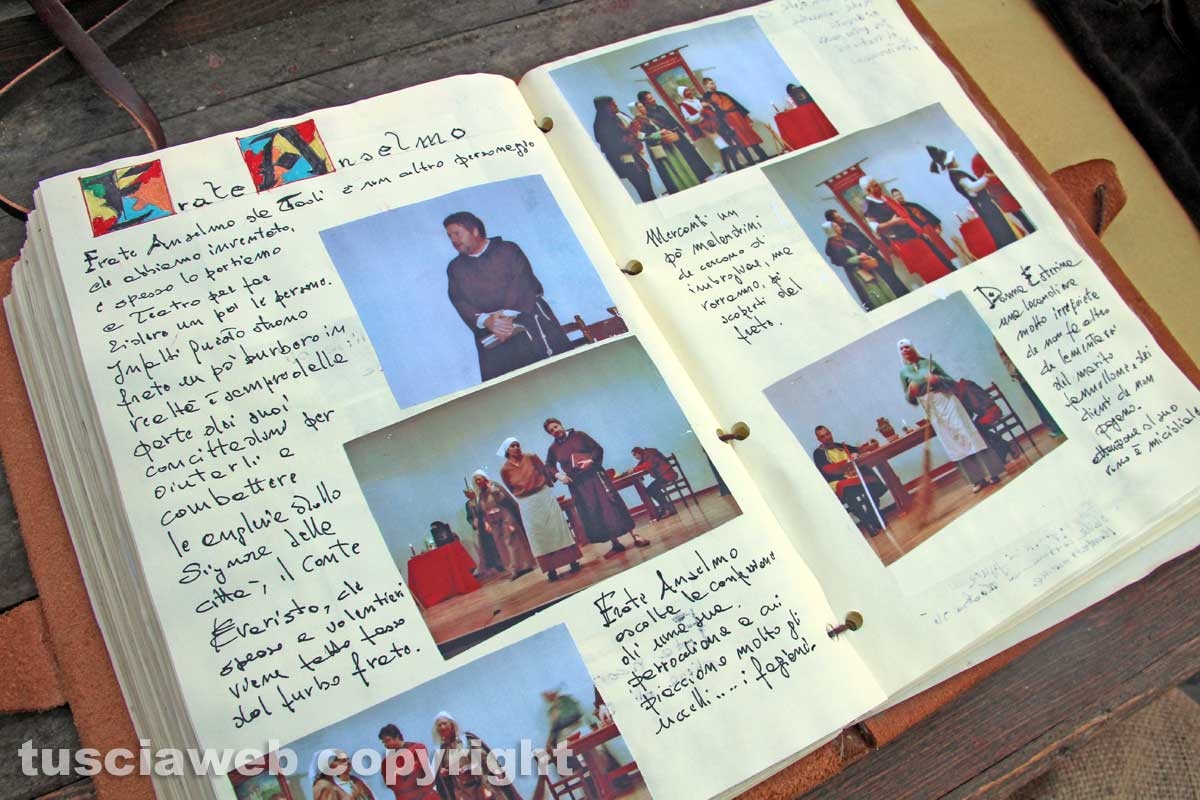 Frate Anselmo
Frate Anselmo de Paoli è un altro personaggio
che abbiamo inventato,
e spesso lo portiamo
a Teatro per far
ridere un po' le persone.
Infatti questo strano
frate un pò burbero in
realtà è sempre dalla
parte dei suoi
concittadini per
aiutarli a
combattere
le angherie dello
Signore della
città, il Conte
Everisto, che
spesso e volentieri
viene tassato
dal furbo frate.
Frate Anselmo
ascolta le confessioni
di una sua
parrocchiana a cui
piacciono molto gli
uccelli.....i fagiani.
Mercanti un
pò malandrini
che cercano di
imbrogliare, ma
verranno, poi
scoperti dal
frate.
Donna Esterina
una locandiera
molto irrequieta
che non fa altro
che lamentarsi
del marito
fannullone e dei
clienti che non
pagano.
attenzione al suo
vino è micidiale
tusciaweb copyright